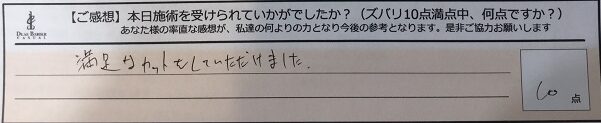 【ご感想】本日施術を受けられていかがでしたか？（ズバリ10点満点中、何点ですか？）
あなた様の率直な感想が、私達の何よりの力となり今後の参考となります。是非ご協力お願いします
DEAR BORDER
CASUAL
満足なカットをしていただけました。
10 点